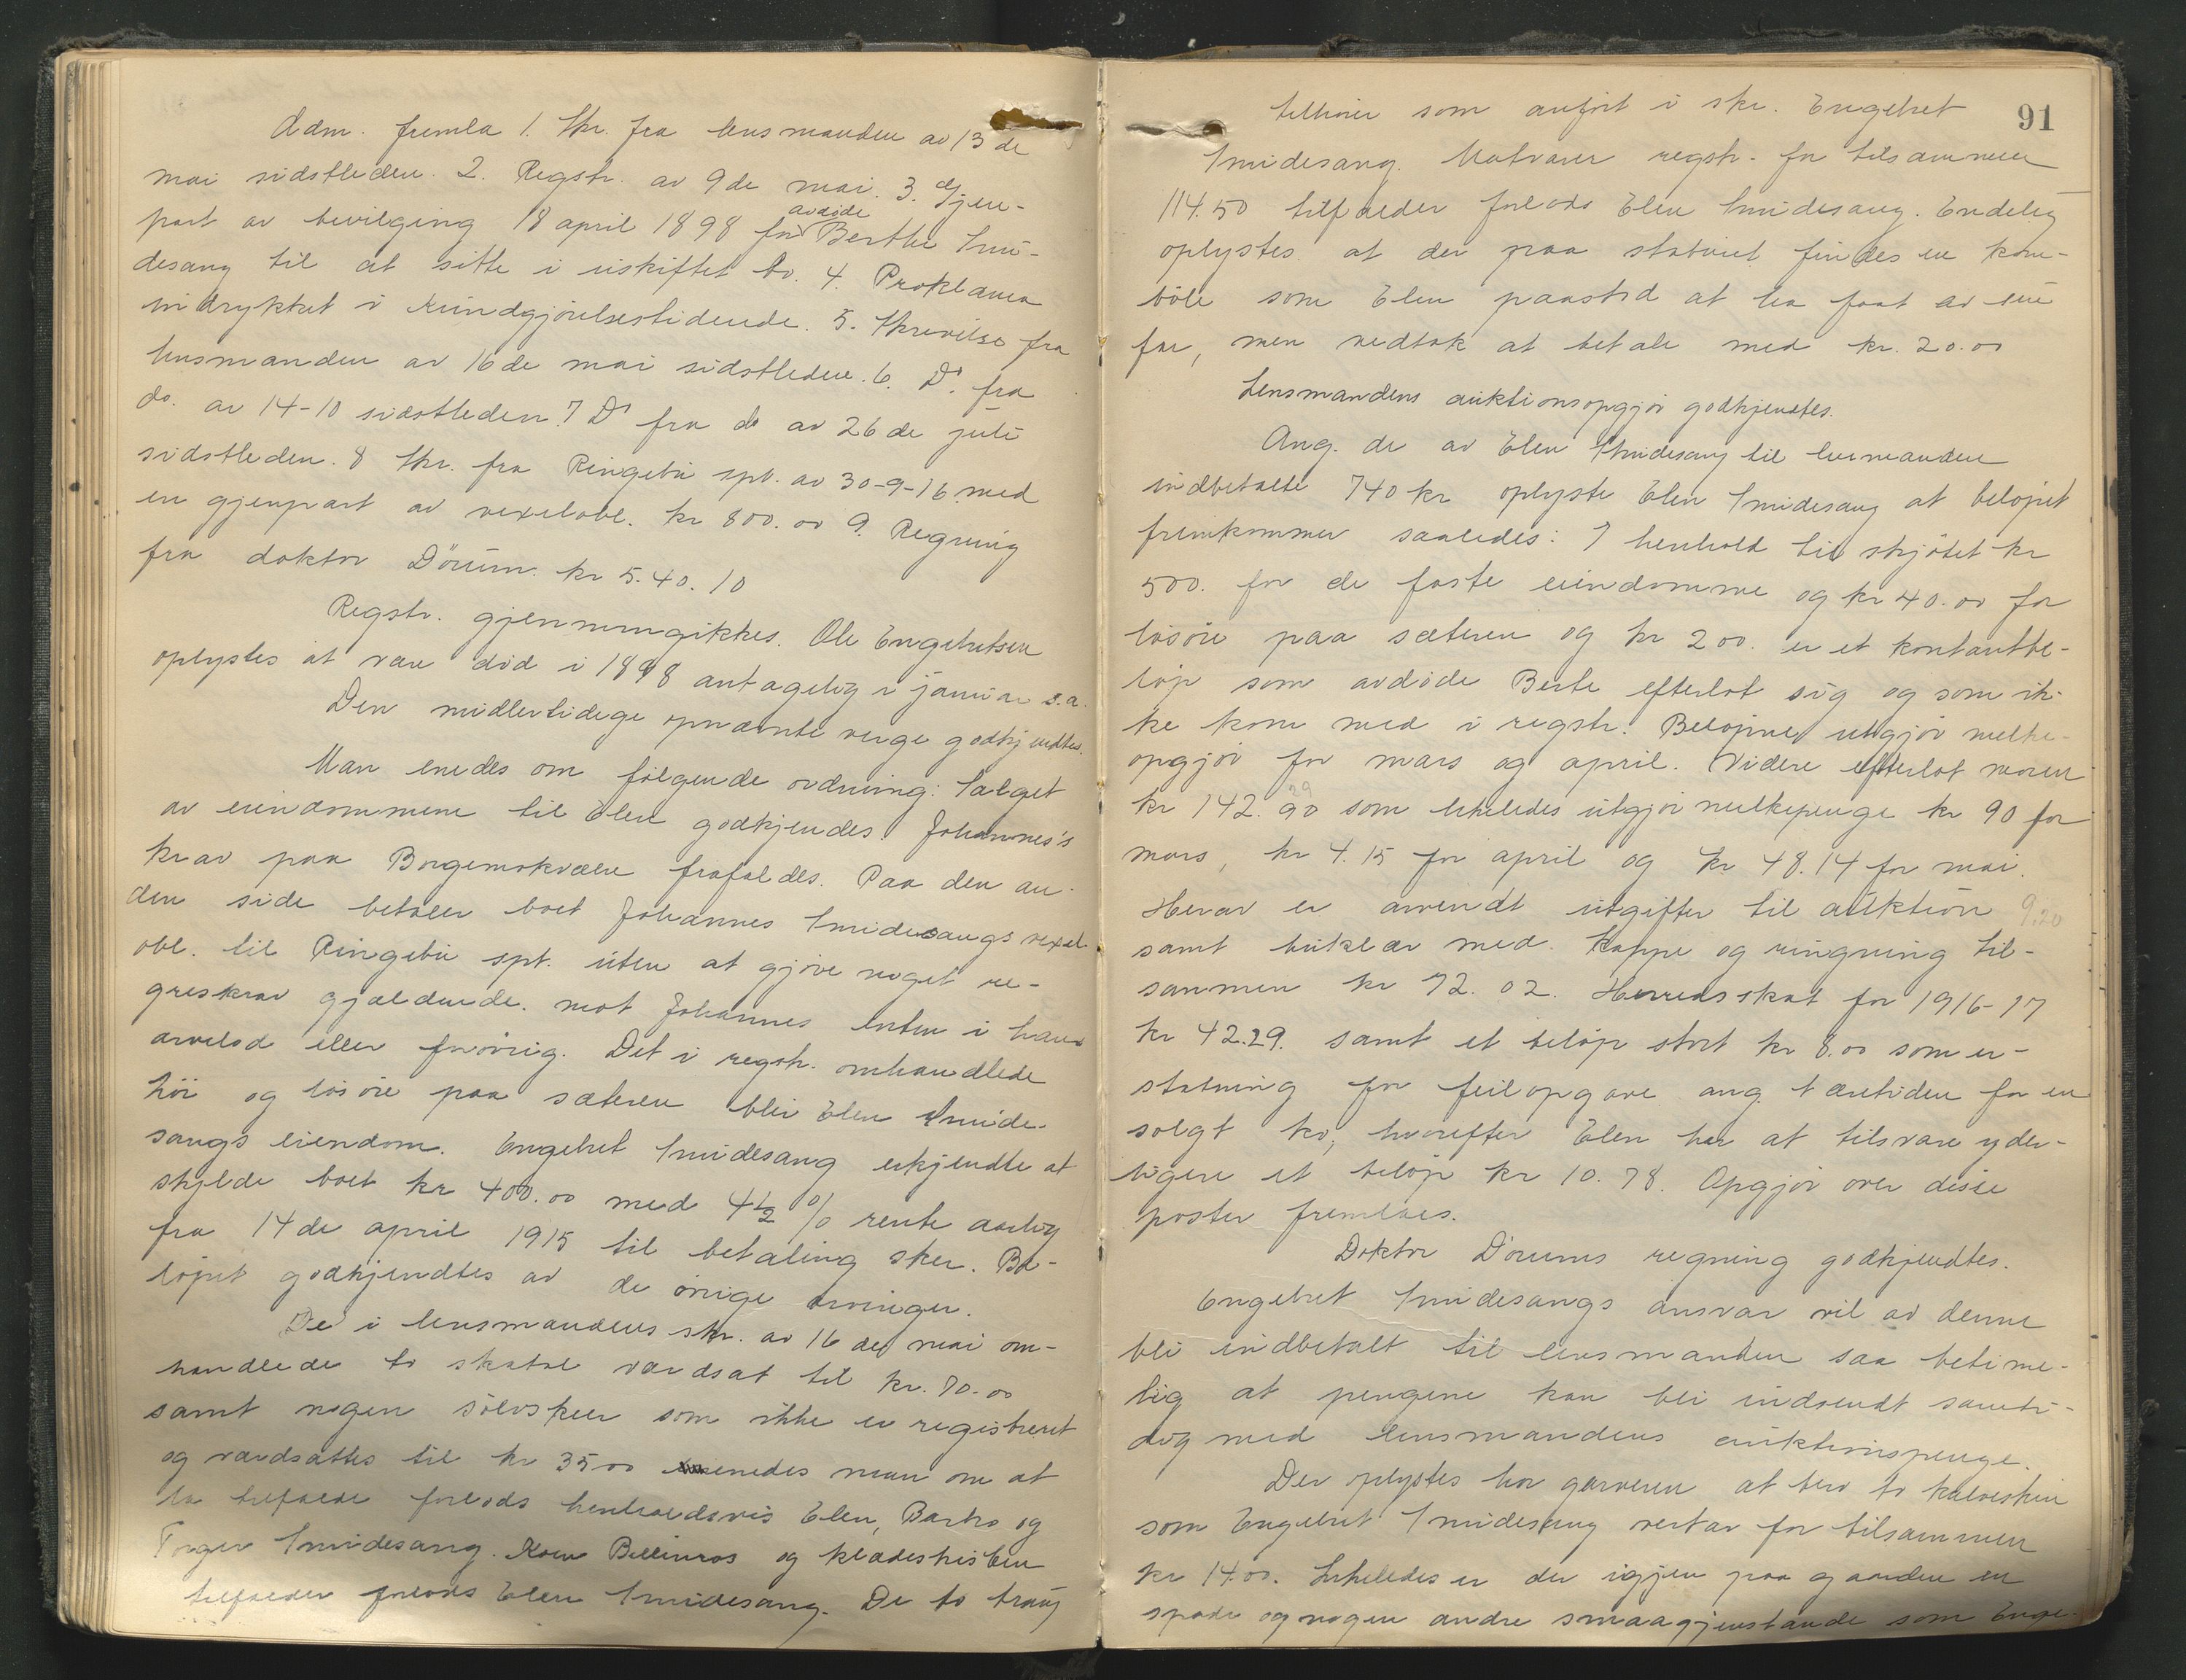 Adm. fremla 1. Skr. fra lensmanden av 13 de
mai sidstleden. 2. Regstr. av 9 de mai. 3. Gjen-
part av bevilging 18 april 1898 for avdøde Berthe Smi-
desang til at sitte i uskiftet bo. 4. Proklama
indrykket i kundgjørelsestidende. 5. Skrivelse fra
lensmanden av 16 de mai sidstleden. 6. Do. fra
do. av 14-10 sidstleden. 7 Do fra do av 26 de juli
sidstleden. 8 Skr. fra Ringebu spb. av 30-9-16 med
en gjenpart av vexelobl. kr 800.00 9. Regning
fra doktor Dörum. kr 5.40. 10
Regstr. gjennemgikkes. Ole Engebretsen
oplystes at være død i 1898 antagelig i januar s.a.
Den midlertidige opnævnte verge godkjendtes.
Man enedes om følgende ordning: Salget
av eiendommene til Elen godkjendes. Johannes's
krav paa Borgemokvæln frafaldes. Paa den an-
den side betaler boet Johannes Smidesangs vexel-
obl. til Ringebu spb. uten at gjøre noget re-
greskrav gjældende mot Johannes enten i hans
arvelod eller forøvrig. Det i regstr. omhandlede
höi og løsøre paa sæteren blir Elen Smide-
sangs eiendom. Engebret Smidesang erkjendte at
skylde boet kr 400.00 med 4 1/2 % rente aarlig
fra 14 de april 1915 til betaling sker. Be-
løpet godkjendtes av de øvrige arvinger.
De i lensmandens skr. av 16 de mai om-
handlede to skatol værdsat til kr. 70.00
samt nogen sølvskeer som ikke er registreret
og værdsattes til kr 35.00 enedes man om at
la tilfalde forlods henholdsvis Elen, Barbro og
Torger Smidesang. Koen Bellinros og klædeskisten
tilfalder forlods Elen Smidesang. De to traug
91
tilhører som anført i skr. Engebret
Smidesang. Matvarer regstr. for tilsammen
114.50 tilfalder forlods Elen Smidesang. Endelig
oplystes at der paa stabbret findes en korn-
böle som Elen paastod at ha faat av sin
far, men vedtok at betale med kr. 20.00
Lensmandens auktionsopgjør godkjendtes.
Ang. de av Elen Smidesang til lensmanden
indbetalte 740 kr oplyste Elen Smidesang at beløpet
fremkommer saaledes: I henhold til skjøtet kr
500. for de faste eiendomme og kr 40.00 for
løsøre paa sæteren og kr 200. er et kontantbe-
løp som avdøde Berte efterlot sig og som ik-
ke kom med i regstr. Beløpne utgjør melke-
opgjør for mars og april. Videre efterlot moren
kr 142.90 29 som likeledes utgjør melkepenge kr 90 for
mars, kr 4.15 for april og kr 48.14 for mai.
Herav er anvendt utgifter til auktion 9.20
samt liklær med kappe og ringning til-
sammen kr 72.02. Herredsskat for 1916-17
kr 42.29. samt et beløp stort kr 8.00 som er-
statning for feilopgave ang. bæretiden for en
solgt ko, hvorefter Elen har at tilsvare yder-
ligere et beløp kr 10.78. Opgjør over disse
poster fremlaes.
Doktor Dörums regning godkjendtes.
Engebret Smidesangs ansvar vil av denne
bli indbetalt til lensmanden saa betime-
lig at pengene kan bli indsendt samti-
dig med lensmandens auktionspenge.
Der oplystes hos garveren at bero to kalveskin
som Engebret Smidesang overtar for tilsammen
kr 14.00. Likeledes er der igjen paa gaarden en
spade og nogen andre smaagjenstande som Enge-